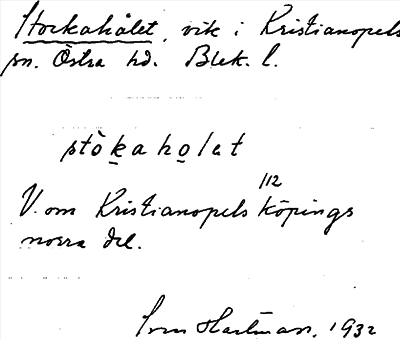 Stockahålet, vik i Kristianopels
sn. Östra hd. Blek. l.
stòkaholet
112
V. om Kristianopels köpings
norra del.
Sven Hartman, 1932